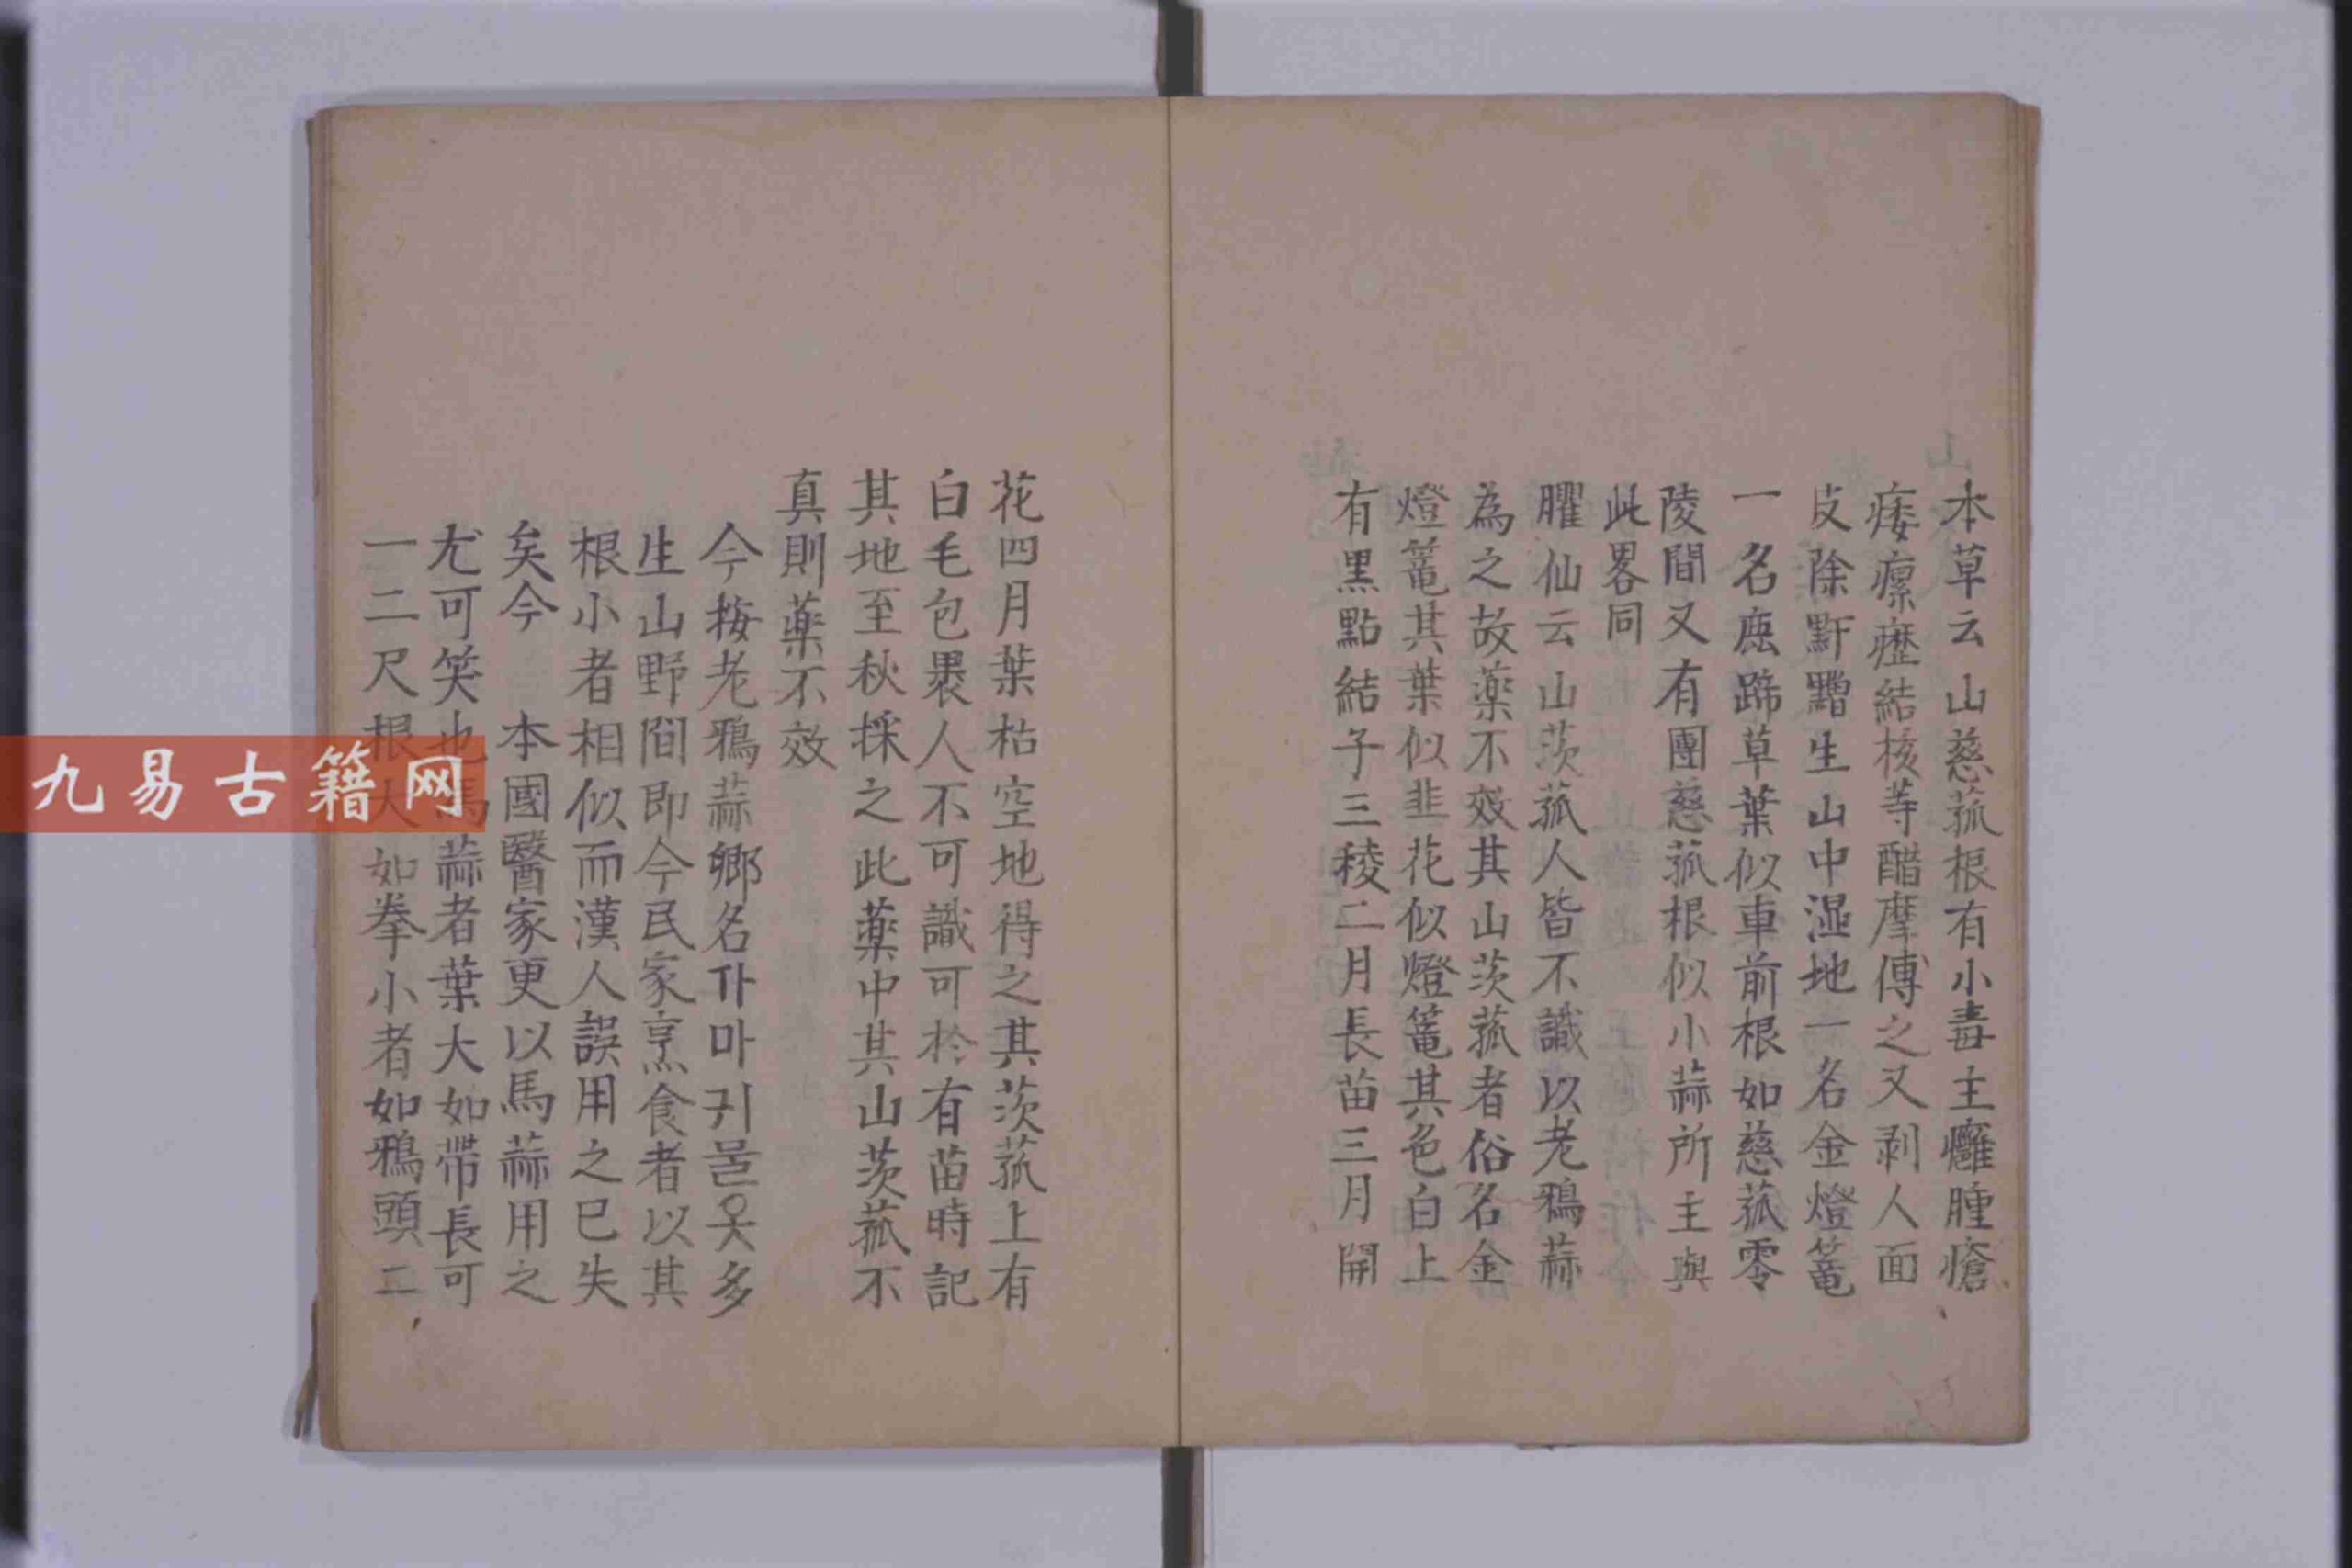 本草云山慈菰根有小毒主癰腫瘡
瘻瘰癧結核等醋摩傅之又剥人面
皮除䵟䵴生山中湿地一名金燈篭
一名鹿蹄草葉似車前根如慈菰零
陵間又有團慈菰根似小蒜所主與
此畧同
臞仙云山茨菰人皆不識以老鴉蒜
為之故薬不效其山茨菰者俗名金
燈篭其葉似韭花似燈篭其色白上
有黒點結子三稜二月長苗三月開
花四月葉枯空地得之其茨菰上有
白毛包褁人不可識可於有苗時記
其地至秋採之此薬中其山茨菰不
真則薬不效
今按老鴉蒜鄉名가마귀물옷多
生山野間即今民家烹食者以其
根小者相似而漢人誤用之已失
矣今 本國醫家更以馬蒜用之
尤可笑也馬蒜者葉大如帶長可
一二尺根大如拳小者如鴉頭二
九易古籍网